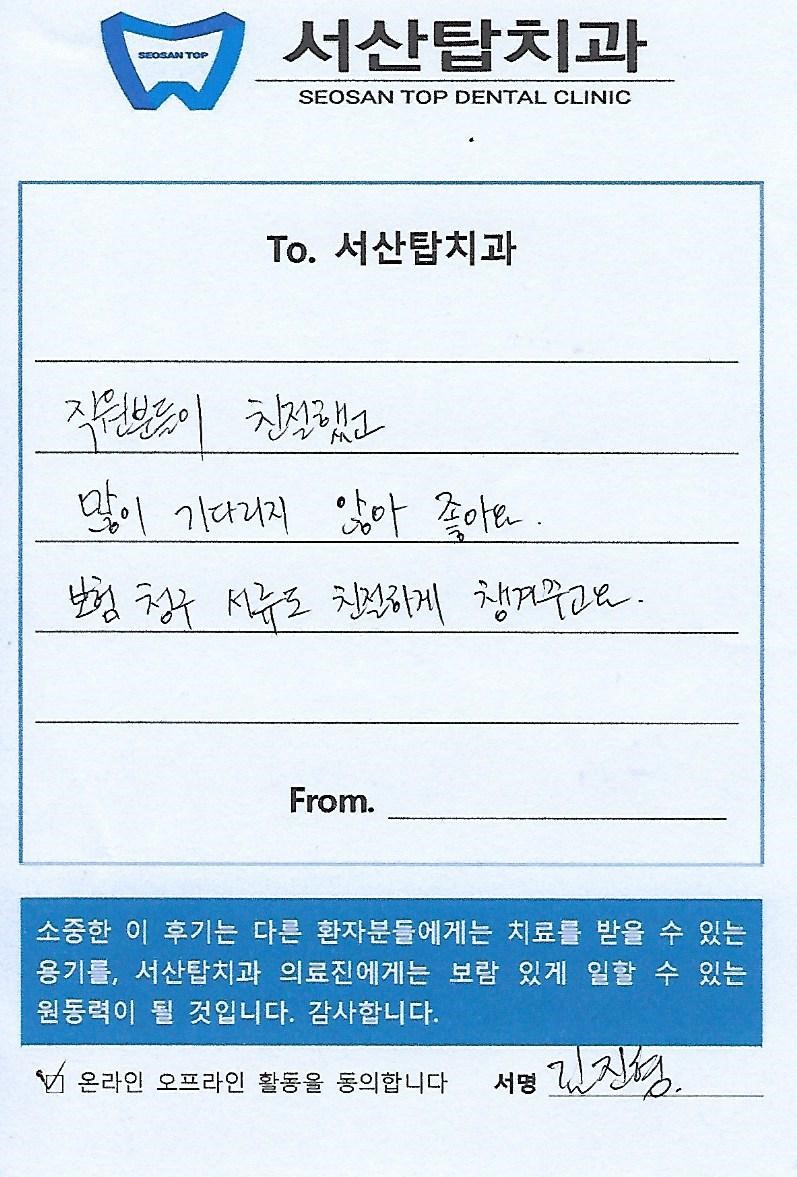 SEOSAN TOP
서산탑치과
SEOSAN TOP DENTAL CLINIC
To. 서산탑치과
직원분들이 친절했고
많이 기다리지 않아 좋아요.
보험 청구 서류도 친절하게 챙겨주고요.
From.
소중한 이 후기는 다른 환자분들에게는 치료를 받을 수 있는
용기를, 서산탑치과 의료진에게는 보람 있게 일할 수 있는
원동력이 될 것입니다. 감사합니다.
온라인 오프라인 활동을 동의합니다 서명 김진형.